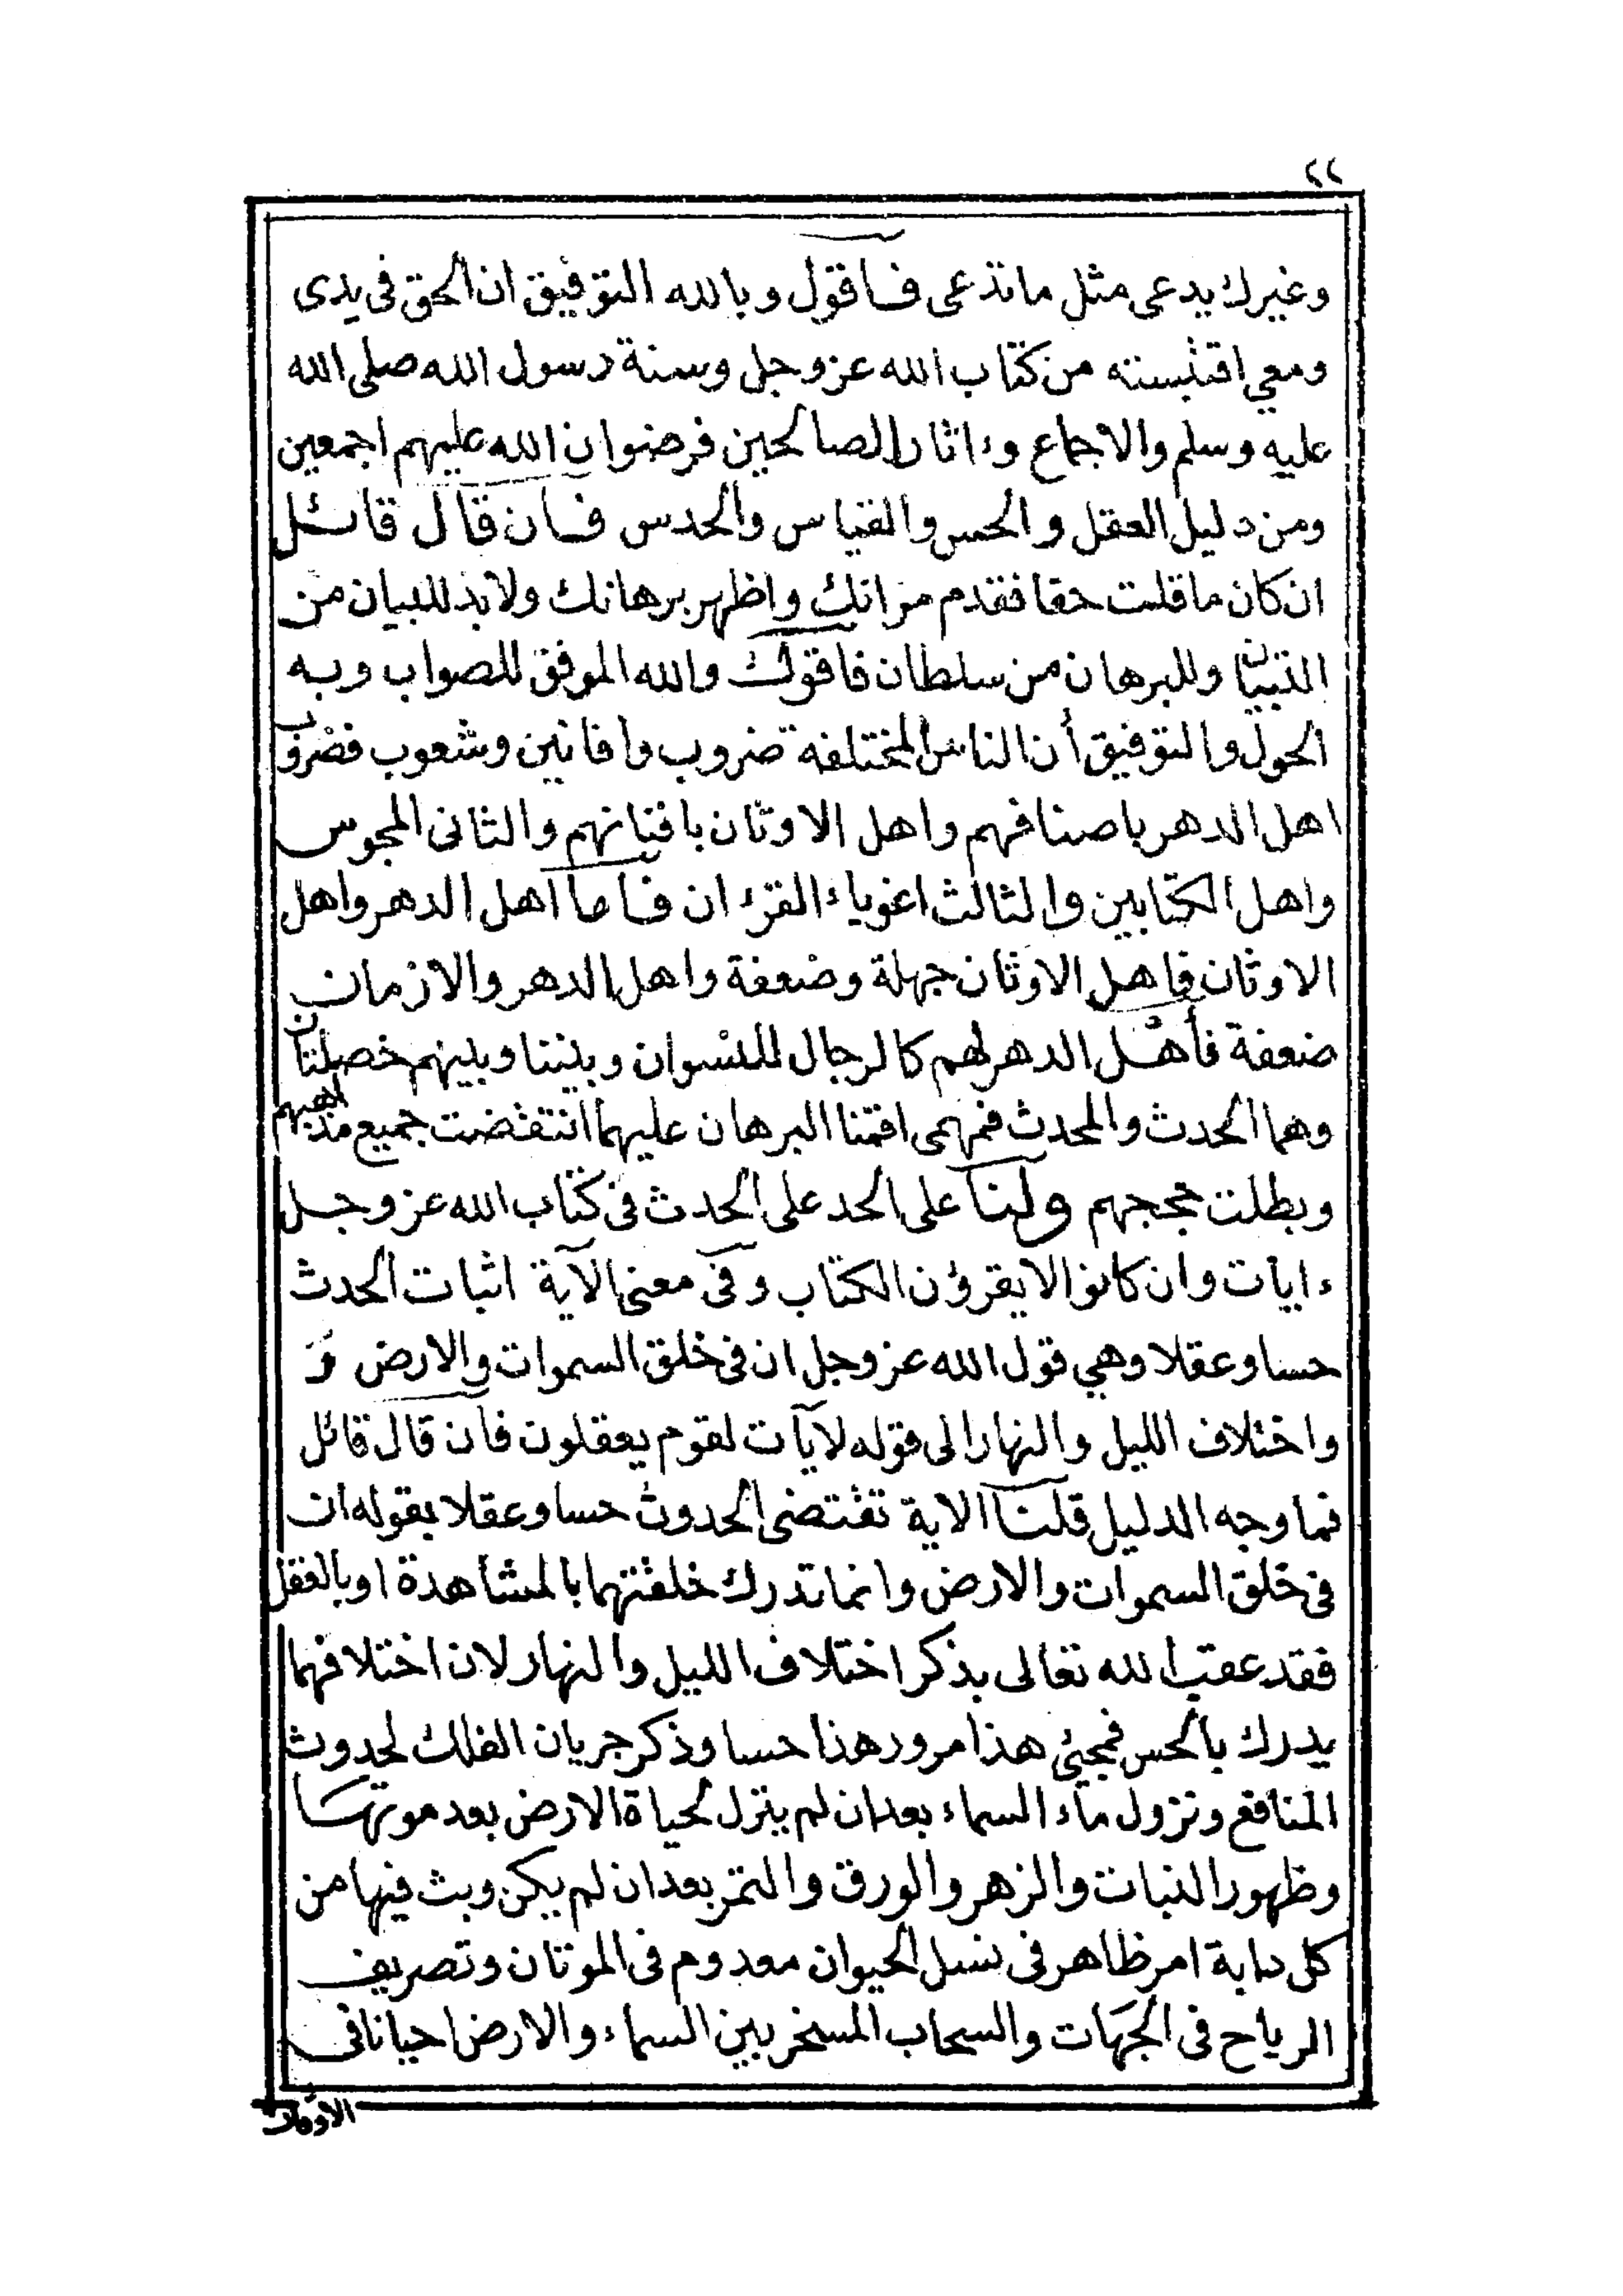 ٢٢
وغيرك يدعى مثل ماتدعى فاقول وبالله التوفيق ان الحق فى يدى
ومعي اقتبسته من كتاب الله عز وجل وسنة رسول الله صلى الله
عليه وسلم والاجماع وءاثار الصالحين فرضوان الله عليهم اجمعين
ومن دليل العقل والحس والقياس والحدس فان قال قائل
ان كان ما قلت حقا فقدم مرانك واظهر برهانك ولابد للبيان من
التبيان وللبرهان من سلطان فاقول والله الموفق للصواب وبه
الحول والتوفيق أن الناس المختلفة ضروب وافانين وشعوب فضروب
اهل الدهر باصنافهم واهل الاوثان بافنانهم والثانى المجوس
واهل الكتابين والثالث اغوياء القرءان فاما اهل الدهر واهل
الاوثان فاهل الاوثان جهلة وضعفة واهل الدهر والازمان
ضعفة فأهل الدهر لهم كالرجال للنسوان وبيننا وبينهم خصلتان
وهما الحدث والمحدث فمهمى اقمنا البرهان عليهما انتقضت جميع مذاهبهم
وبطلت حججهم ولنا على الحد على الحدث فى كتاب الله عز وجل
ءايات وان كانوا لا يقرؤن الكتاب وفى معنى الآية اثبات الحدث
حسا وعقلا وهي قول الله عز وجل ان فى خلق السموات والارض و
واختلاف الليل والنهار الى قوله لآيات لقوم يعقلون فان قال قائل
فما وجه الدليل قلنا الاية تقتضى الحدوث حسا وعقلا بقوله ان
فى خلق السموات والارض وانما تدرك خلقتهما بالمشاهدة او بالعقل
فقد عقب الله تعالى بذكر اختلاف الليل والنهار لان اختلافهما
يدرك بالحس فمجيئ هذا مرور هذا حسا وذكر جريان الفلك لحدوث
المنافع ونزول ماء السماء بعد ان لم ينزل لحياة الارض بعد موتها
وظهور النبات والزهر والورق والثمر بعد ان لم يكن وبث فيها من
كل دابة امر ظاهر فى نسل الحيوان معدوم فى الموتان وتصريف
الرياح فى الجهات والسحاب المسخر بين السماء والارض احيانا فى
الاوقات